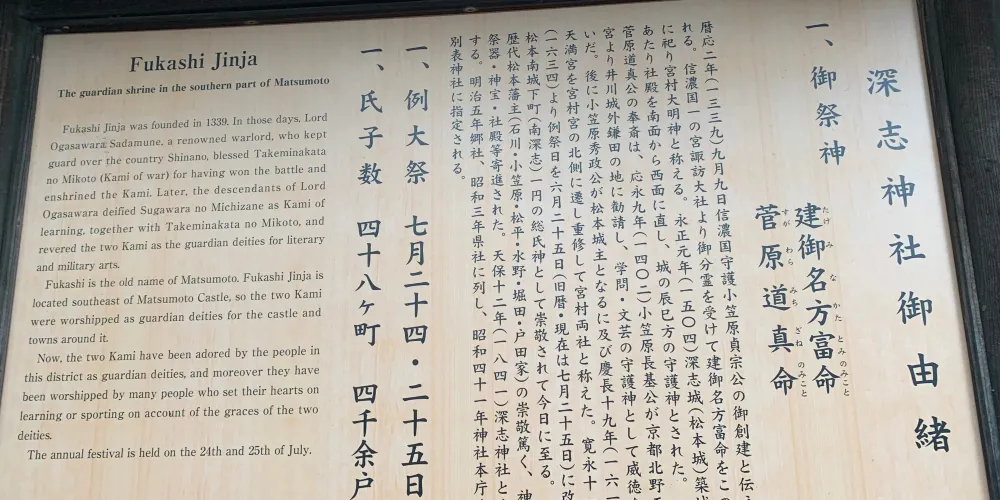 深志神社御由緒
一、御祭神
建御名方富命
たけみなかたとみのみこと
菅原道真命
すがわらみちざねのみこと
暦応二年(一三三九)九月九日信濃国守護小笠原貞宗公の御創建と伝え
れる。信濃国一の宮諏訪大社より御分霊を受けて建御名方富命をこの
に祀り宮村大明神と称える。永正元年(一五〇四)深志城(松本城)築城
あたり社殿を南面から西面に直し、城の辰巳方の守護神とされた。
菅原道真公の奉斎は、応永九年(一四〇二)小笠原長基公が京都北野天
宮より井川城外鎌田の地に勧請し、学問・文芸の守護神として威徳
いだ。後に小笠原秀政公が松本城主となるに及び慶長十九年(一六一
天満宮を宮村宮の北側に遷し重修して宮村両社と称えた。寛永十
(一六三四)より例祭日を六月二十五日(旧暦・現在は七月二十五日)に改
松本南城下町(南深志)一円の総氏神として崇敬されて今日に至る。
歴代松本藩主(石川・小笠原・松平・水野・堀田・戸田家)の崇敬篤く、神
祭器・神宝・社殿等寄進された。天保十二年(一八四一)深志神社と
する。明治五年郷社、昭和三年県社に列し、昭和四十一年神社本庁
別表神社に指定される。
一、例大祭 七月二十四・二十五日
一、氏子数 四十八ヶ町 四千余戸
Fukashi Jinja
The guardian shrine in the southern part of Matsumoto
Fukashi Jinja was founded in 1339. In those days, Lord
Ogasawara Sadamune, a renowned warlord, who kept
guard over the country Shinano, blessed Takeminakata
no Mikoto (Kami of war) for having won the battle and
enshrined the Kami. Later, the descendants of Lord
Ogasawara deified Sugawara no Michizane as Kami of
learning, together with Takeminakata no Mikoto, and
revered the two Kami as the guardian deities for literary
and military arts.
Fukashi is the old name of Matsumoto. Fukashi Jinja is
located southeast of Matsumoto Castle, so the two Kami
were worshipped as guardian deities for the castle and
towns around it.
Now, the two Kami have been adored by the people in
this district as guardian deities, and moreover they have
been worshipped by many people who set their hearts on
learning or sporting on account of the graces of the two
deities.
The annual festival is held on the 24th and 25th of July.